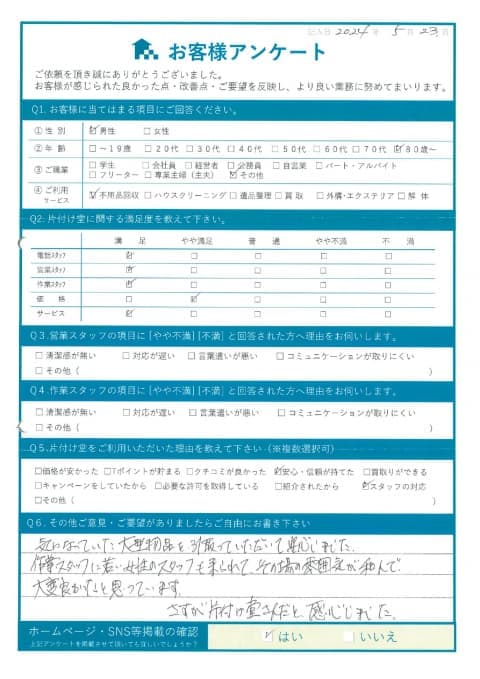 記入日 2024 年 5 月 23 日
お客様アンケート
ご依頼を頂き誠にありがとうございました。
お客様が感じられた良かった点・改善点・ご要望を反映し、より良い業務に努めてまいります。
Q1. お客様に当てはまる項目にご回答ください。
①性別 ☑男性 □女性
②年齢 □～19歳 □20代 □30代 □40代 □50代 □60代 □70代 ☑80歳～
③ご職業 □学生 □会社員 □経営者 □公務員 □自営業 □パート・アルバイト
□フリーター □専業主婦（主夫） ☑その他
④ご利用サービス ☑不用品回収 □ハウスクリーニング □遺品整理 □買取 □外構・エクステリア □解体
Q2. 片付け堂に関する満足度を教えて下さい。
満足 やや満足 普通 やや不満 不満
電話スタッフ ☑ □ □ □ □
営業スタッフ ☑ □ □ □ □
作業スタッフ ☑ □ □ □ □
価格 □ ☑ □ □ □
サービス ☑ □ □ □ □
Q3.営業スタッフの項目に[やや不満][不満]と回答された方へ理由をお伺いします。
□清潔感が無い □対応が遅い □言葉遣いが悪い □コミュニケーションが取りにくい
□その他（ ）
Q4.作業スタッフの項目に[やや不満][不満]と回答された方へ理由をお伺いします。
□清潔感が無い □対応が遅い □言葉遣いが悪い □コミュニケーションが取りにくい
□その他（ ）
Q5.片付け堂をご利用いただいた理由を教えて下さい（※複数選択可）
□価格が安かった □Tポイントが貯まる □クチコミが良かった ☑安心・信頼が持てた □買取りができる
□キャンペーンをしていたから □必要な許可を取得している □紹介されたから ☑スタッフの対応
□その他（ ）
Q6.その他ご意見・ご要望がありましたらご自由にお書き下さい
気になっていた大型物品を引取っていただいて感じました。
作業スタッフに若い女性のスタッフも来られて、その場の雰囲気が和んで、
大変良かったと思っています。
さすが片付け堂さんだと感心しました。
ホームページ・SNS等掲載の確認 ☑はい □いいえ
上記アンケートを掲載させて頂いても宜しいでしょうか？